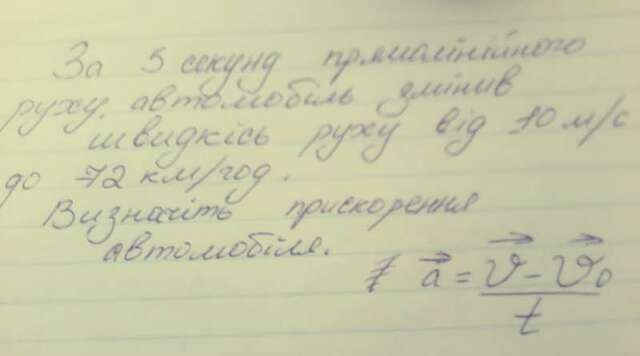 За 5 секунд прямолінійного
руху, автомобіль змінив
швидкісь руху від 10 м/с
до 72 км/год.
Визначіть прискорення
автомобіля.
a⃗ = (v⃗ - v⃗₀) / t